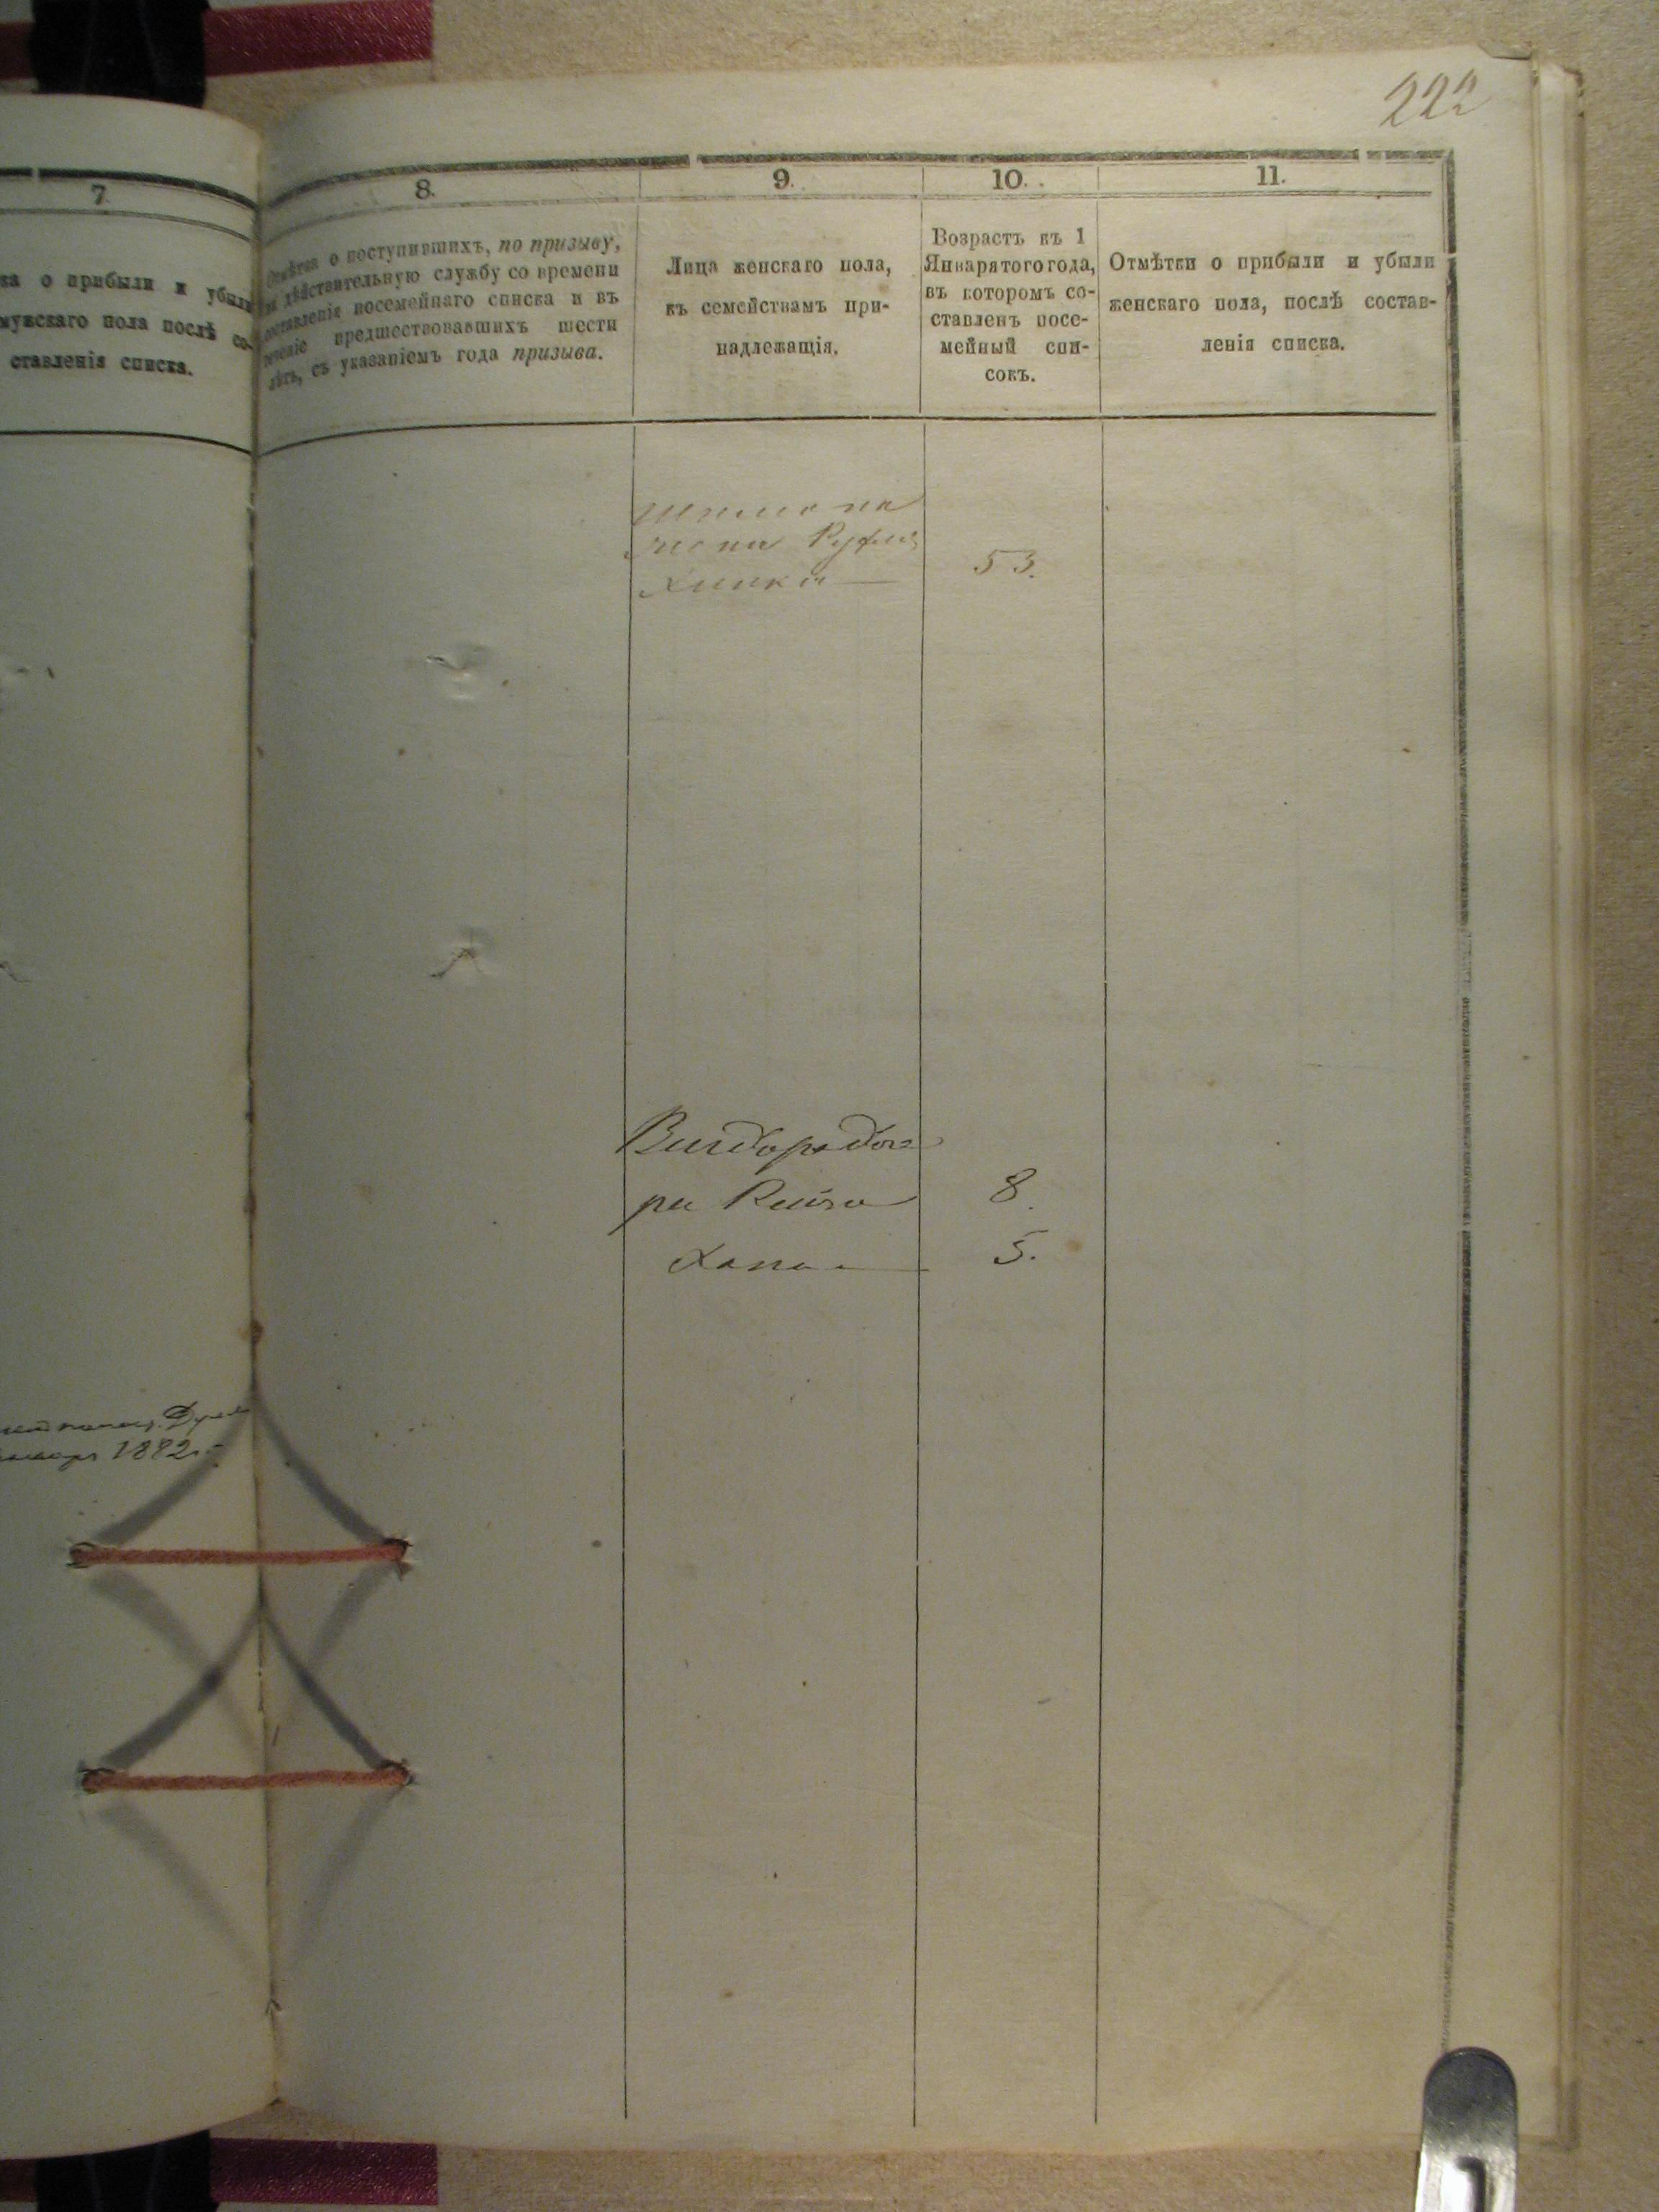 222
7.
о прибыли и убыли
мужскаго пола послѣ со-
ставленія списка.
8.
Отмѣтка о поступившихъ, по призыву,
на дѣйствительную службу со времени
составленія посемейнаго списка и въ
теченіе предшествовавшихъ шести
лѣтъ, съ указаніемъ года призыва.
9.
Лица женскаго пола,
къ семействамъ при-
надлежащія.
10.
Возрастъ къ 1
Января того года,
въ которомъ со-
ставленъ посе-
мейный спи-
сокъ.
11.
Отмѣтки о прибыли и убыли
женскаго пола, послѣ состав-
ленія списка.
жена
53.
доче
ри 8.
Хана 5.
1892